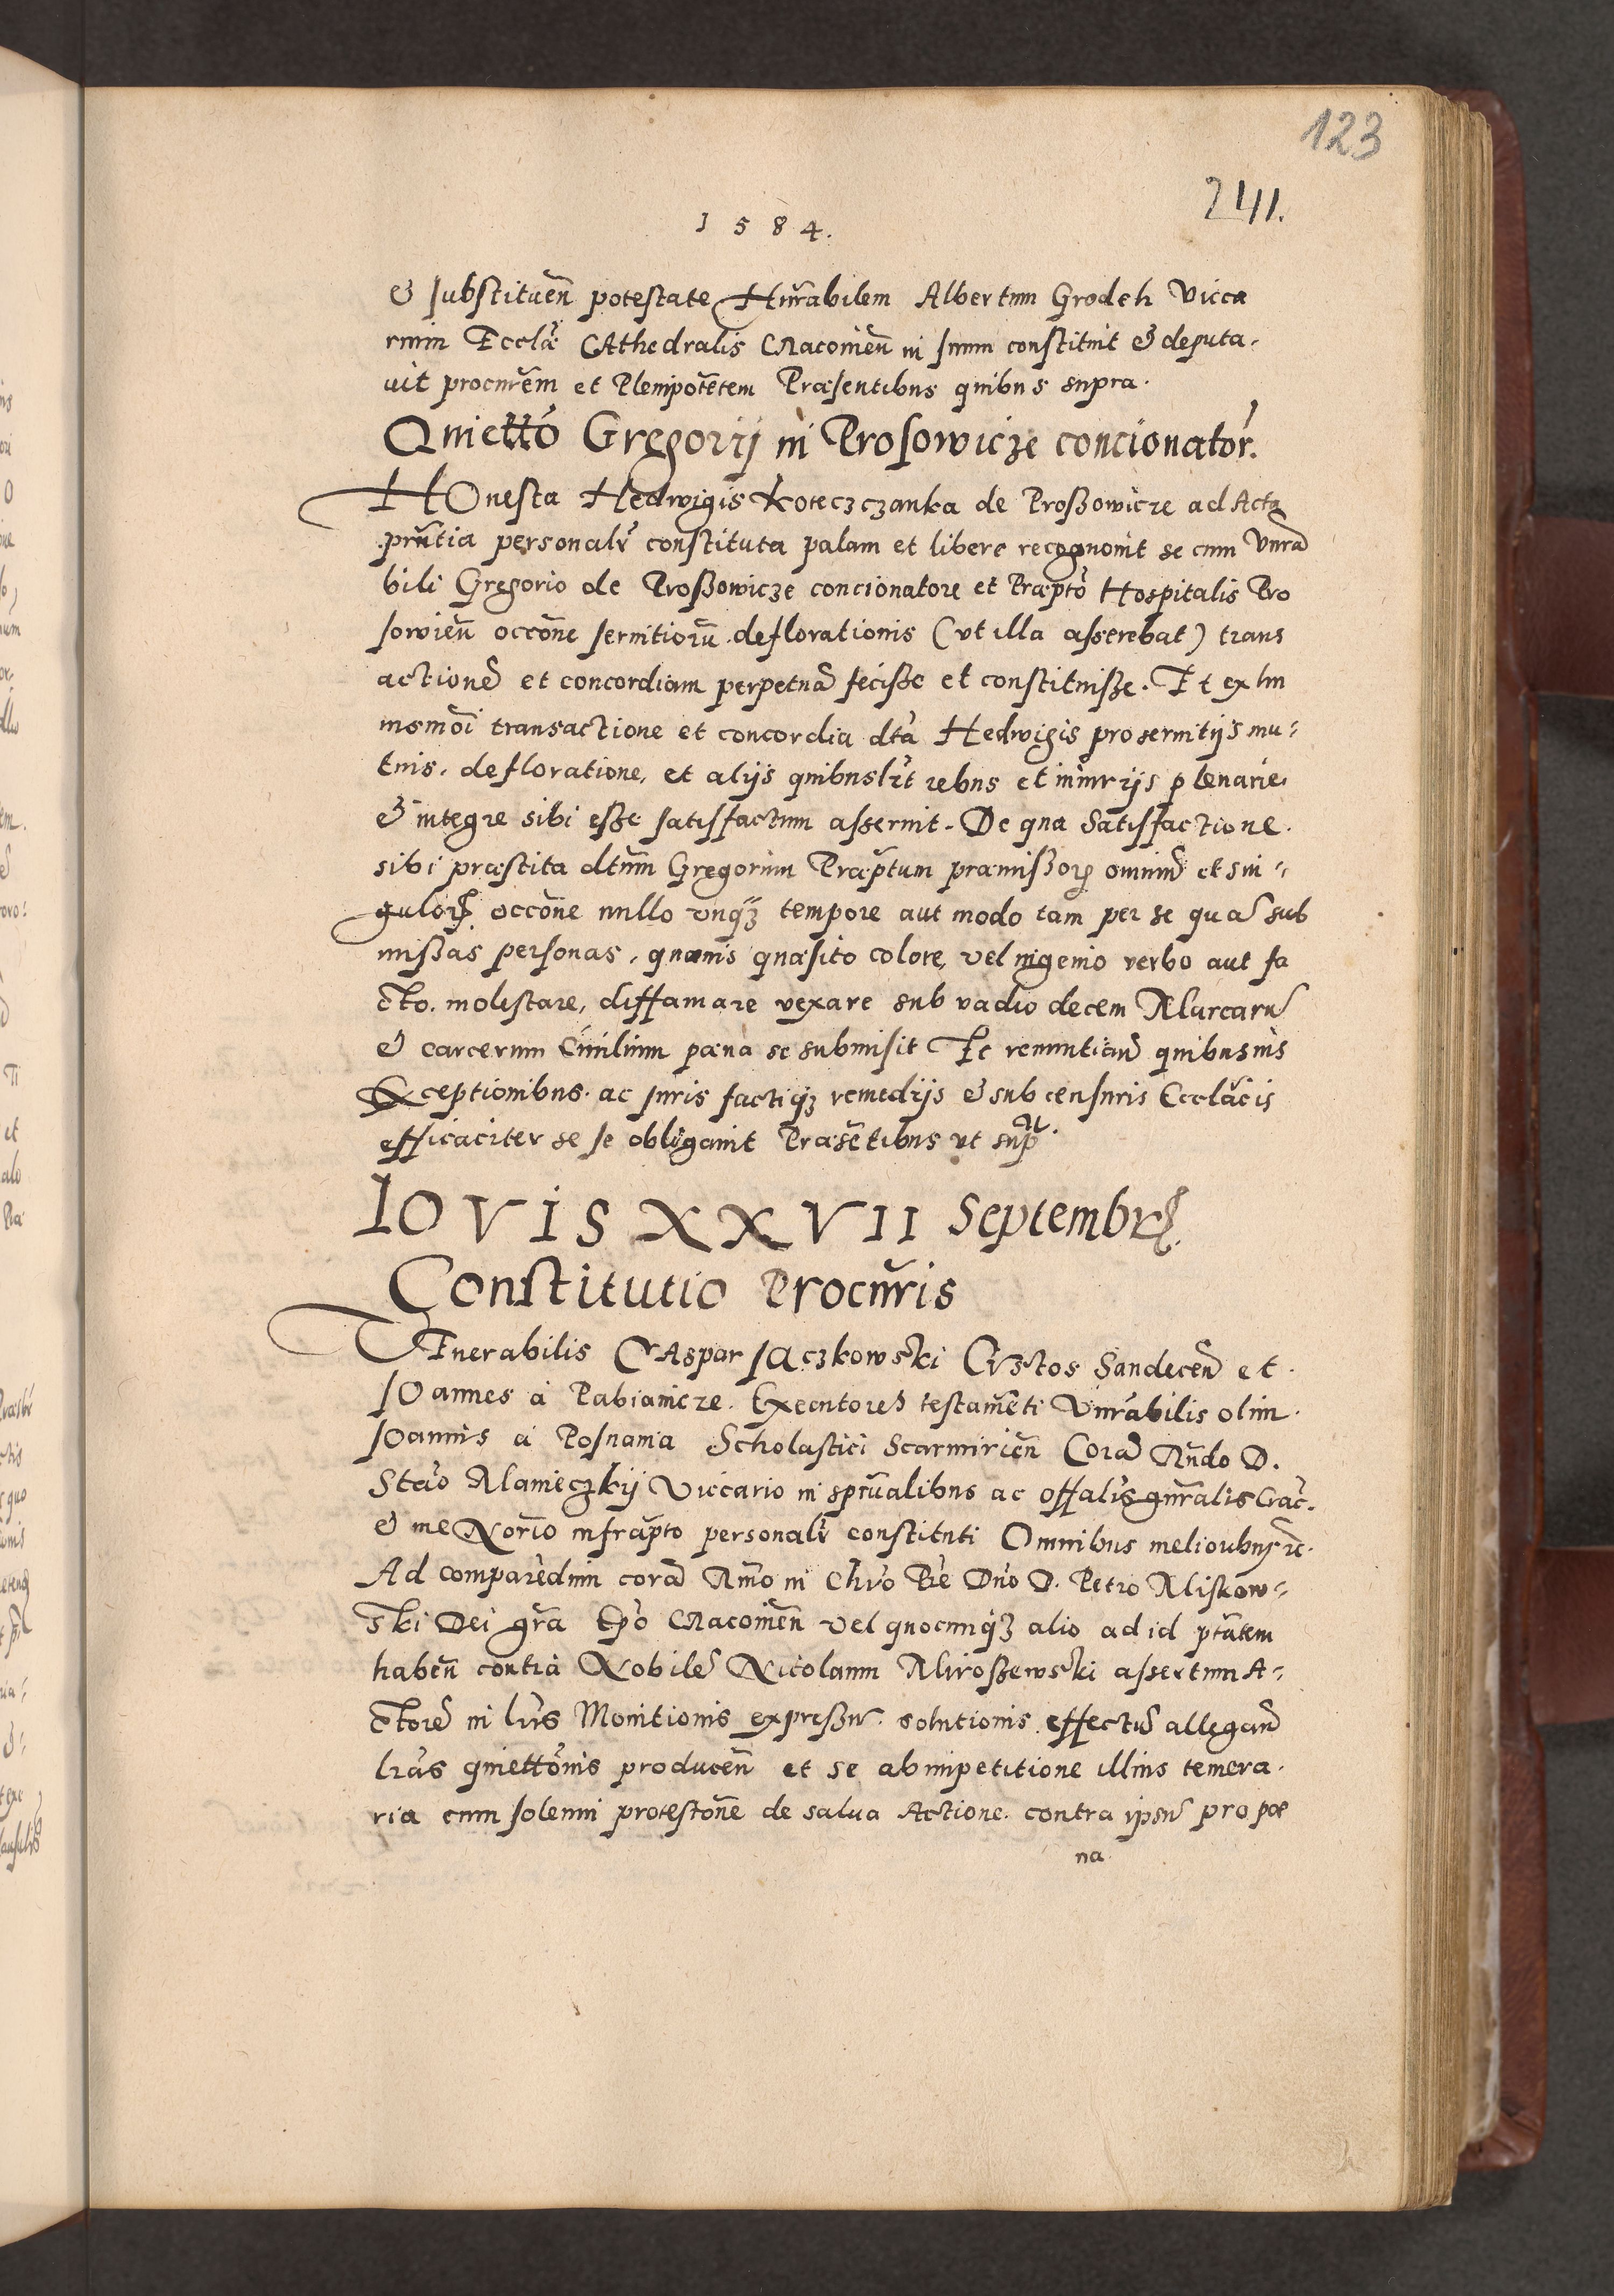 123
241.
1584.
& substituen̄ potestate Hnrabilem Albertum Grodeh Vicca
rium Ecclæ CAthedralis CRacouien̄ in suum constituit & deputa-
uit procurem et Plenipotētem Præsentibus quibus supra.
Quiettō Gregorij in Prosowicze concionator.
HOnesta Hedwigis Koteczczanka de Proszowicze ad Acta
prntia personalr constituta palam et libere recognouit se cum Vnra
bili Gregorio de Proszowicze concionatore et Præpto Hospitalis Pro
sowien̄ occōne seruitiorū deflorationis (vt illa asserebat) trans
actionē et concordiam perpetuā fecisse et constituisse. Et ex hu
iusmōi transactione et concordia dta Hedwigis pro seruitijs mu-
tuis, defloratione, et alijs quibuslt rebus et iniurijs plenarie
& integre sibi esse satisfactum asseruit. De qua Satisfactione
sibi præstita dtum Gregorium Præptum præmissorū omniū et sin-
gulorū occōne nullo vnqz tempore aut modo tam per se quā sub
missas personas, quouis quæsito colore, vel ingenio verbo aut fa
cto. molestare, diffamare vexare sub vadio decem Marcarū
& carcerum Ciuilium pæna se submisit Ec renuntiād quibusuis
Exceptionibus. ac Iuris factiqz remedijs & sub censuris Ecclacis
efficaciter se se obligauit Præsētibus ut supra.
IOVIS XXVII Septembris
Constitutio Procuris
VEnerabilis CAspar IAczkowski CVstos Sandecen̄ et
IOannes a Pabianicze. Executores testamēti Vnrabilis olim
IOannis a Posnania Scholastici Scarmirien̄ Corā Rndo D.
Stao Manieczkij Viccario in sprualibus ac offalis gnralis Crac.
& me Norio infrapto personalr constituti Omnibus melioubus rc.
Ad comparēdum corā Rmo in Chro Pre Dno D. Petro Miskow-
ski Dei gra Epo CRacouien̄ vel quocunqz alio ad id ptatem
haben̄ contra Nobilē Nicolaum Miroszewski assertum A-
ctorē in lris Monitionis expressū. solutionis effectū allegan̄
lras quiettōnis producen̄ et se ab impetitione illius temera-
ria cum solenni protestōne de salua Actione. contra ipsū pro pæ
na